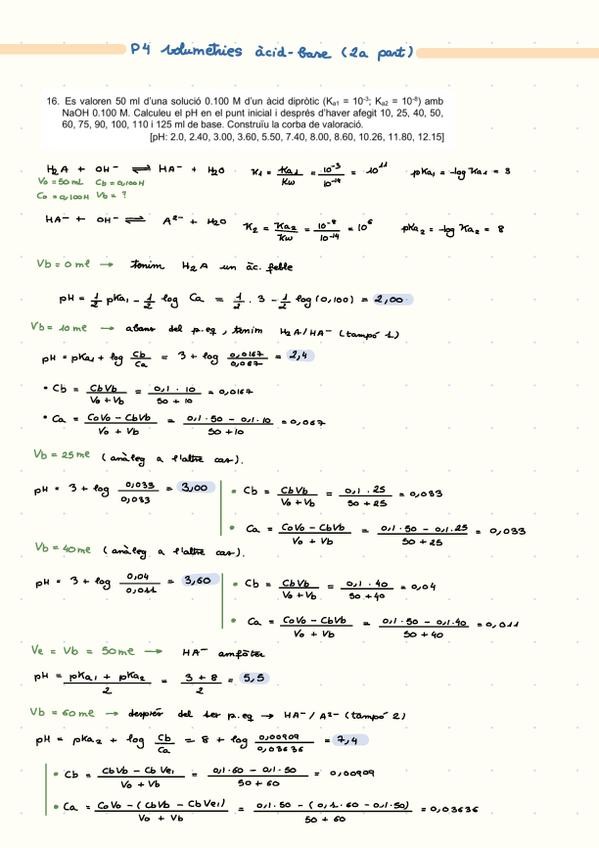 P4 volumetries àcid-base (2a part)
16. Es valoren 50 ml d'una solució 0.100 M d'un àcid dipròtic (Ka1 = 10⁻³; Ka2 = 10⁻⁸) amb
NaOH 0.100 M. Calculeu el pH en el punt inicial i després d'haver afegit 10, 25, 40, 50,
60, 75, 90, 100, 110 i 125 ml de base. Construïu la corba de valoració.
[pH: 2.0, 2.40, 3.00, 3.60, 5.50, 7.40, 8.00, 8.60, 10.26, 11.80, 12.15]
H₂A + OH⁻ ⇌ HA⁻ + H₂O K₁ = Ka₁/Kw = 10⁻³/10⁻¹⁴ = 10¹¹ pKa₁ = -log Ka₁ = 3
V₀ = 50ml Cb = 0,100M
C₀ = 0,100M Vb = ?
HA⁻ + OH⁻ ⇌ A²⁻ + H₂O K₂ = Ka₂/Kw = 10⁻⁸/10⁻¹⁴ = 10⁶ pKa₂ = -log Ka₂ = 8
Vb = 0 ml → tenim H₂A un àc. feble
pH = 1/2 pKa₁ - 1/2 log Ca = 1/2 · 3 - 1/2 log (0,100) = 2,00
Vb = 10 ml → abans del p.eq, tenim H₂A/HA⁻ (tampó 1)
pH = pKa₁ + log Cb/Ca = 3 + log 0,0167/0,067 = 2,4
• Cb = CbVb/V₀+Vb = 0,1 · 10/50+10 = 0,0167
• Ca = C₀V₀ - CbVb/V₀ + Vb = 0,1·50 - 0,1·10/50+10 = 0,067
Vb = 25 ml (anàleg a l'altre cas).
pH = 3 + log 0,033/0,033 = 3,00 • Cb = CbVb/V₀+Vb = 0,1 · 25/50+25 = 0,033
• Ca = C₀V₀ - CbVb/V₀ + Vb = 0,1·50 - 0,1·25/50+25 = 0,033
Vb = 40 ml (anàleg a l'altre cas).
pH = 3 + log 0,04/0,011 = 3,60 • Cb = CbVb/V₀+Vb = 0,1 · 40/50+40 = 0,04
• Ca = C₀V₀ - CbVb/V₀ + Vb = 0,1·50 - 0,1·40/50+40 = 0,011
Ve = Vb = 50 ml → HA⁻ amfòter
pH = pKa₁ + pKa₂/2 = 3 + 8/2 = 5,5
Vb = 60 ml → després del 1er p.eq → HA⁻/A²⁻ (tampó 2)
pH = pKa₂ + log Cb/Ca = 8 + log 0,00909/0,03636 = 7,4
• Cb = CbVb - CbVe₁/V₀ + Vb = 0,1·60 - 0,1·50/50+60 = 0,00909
• Ca = C₀V₀ - (CbVb - CbVe₁)/V₀ + Vb = 0,1·50 - (0,1·60 - 0,1·50)/50+60 = 0,03636